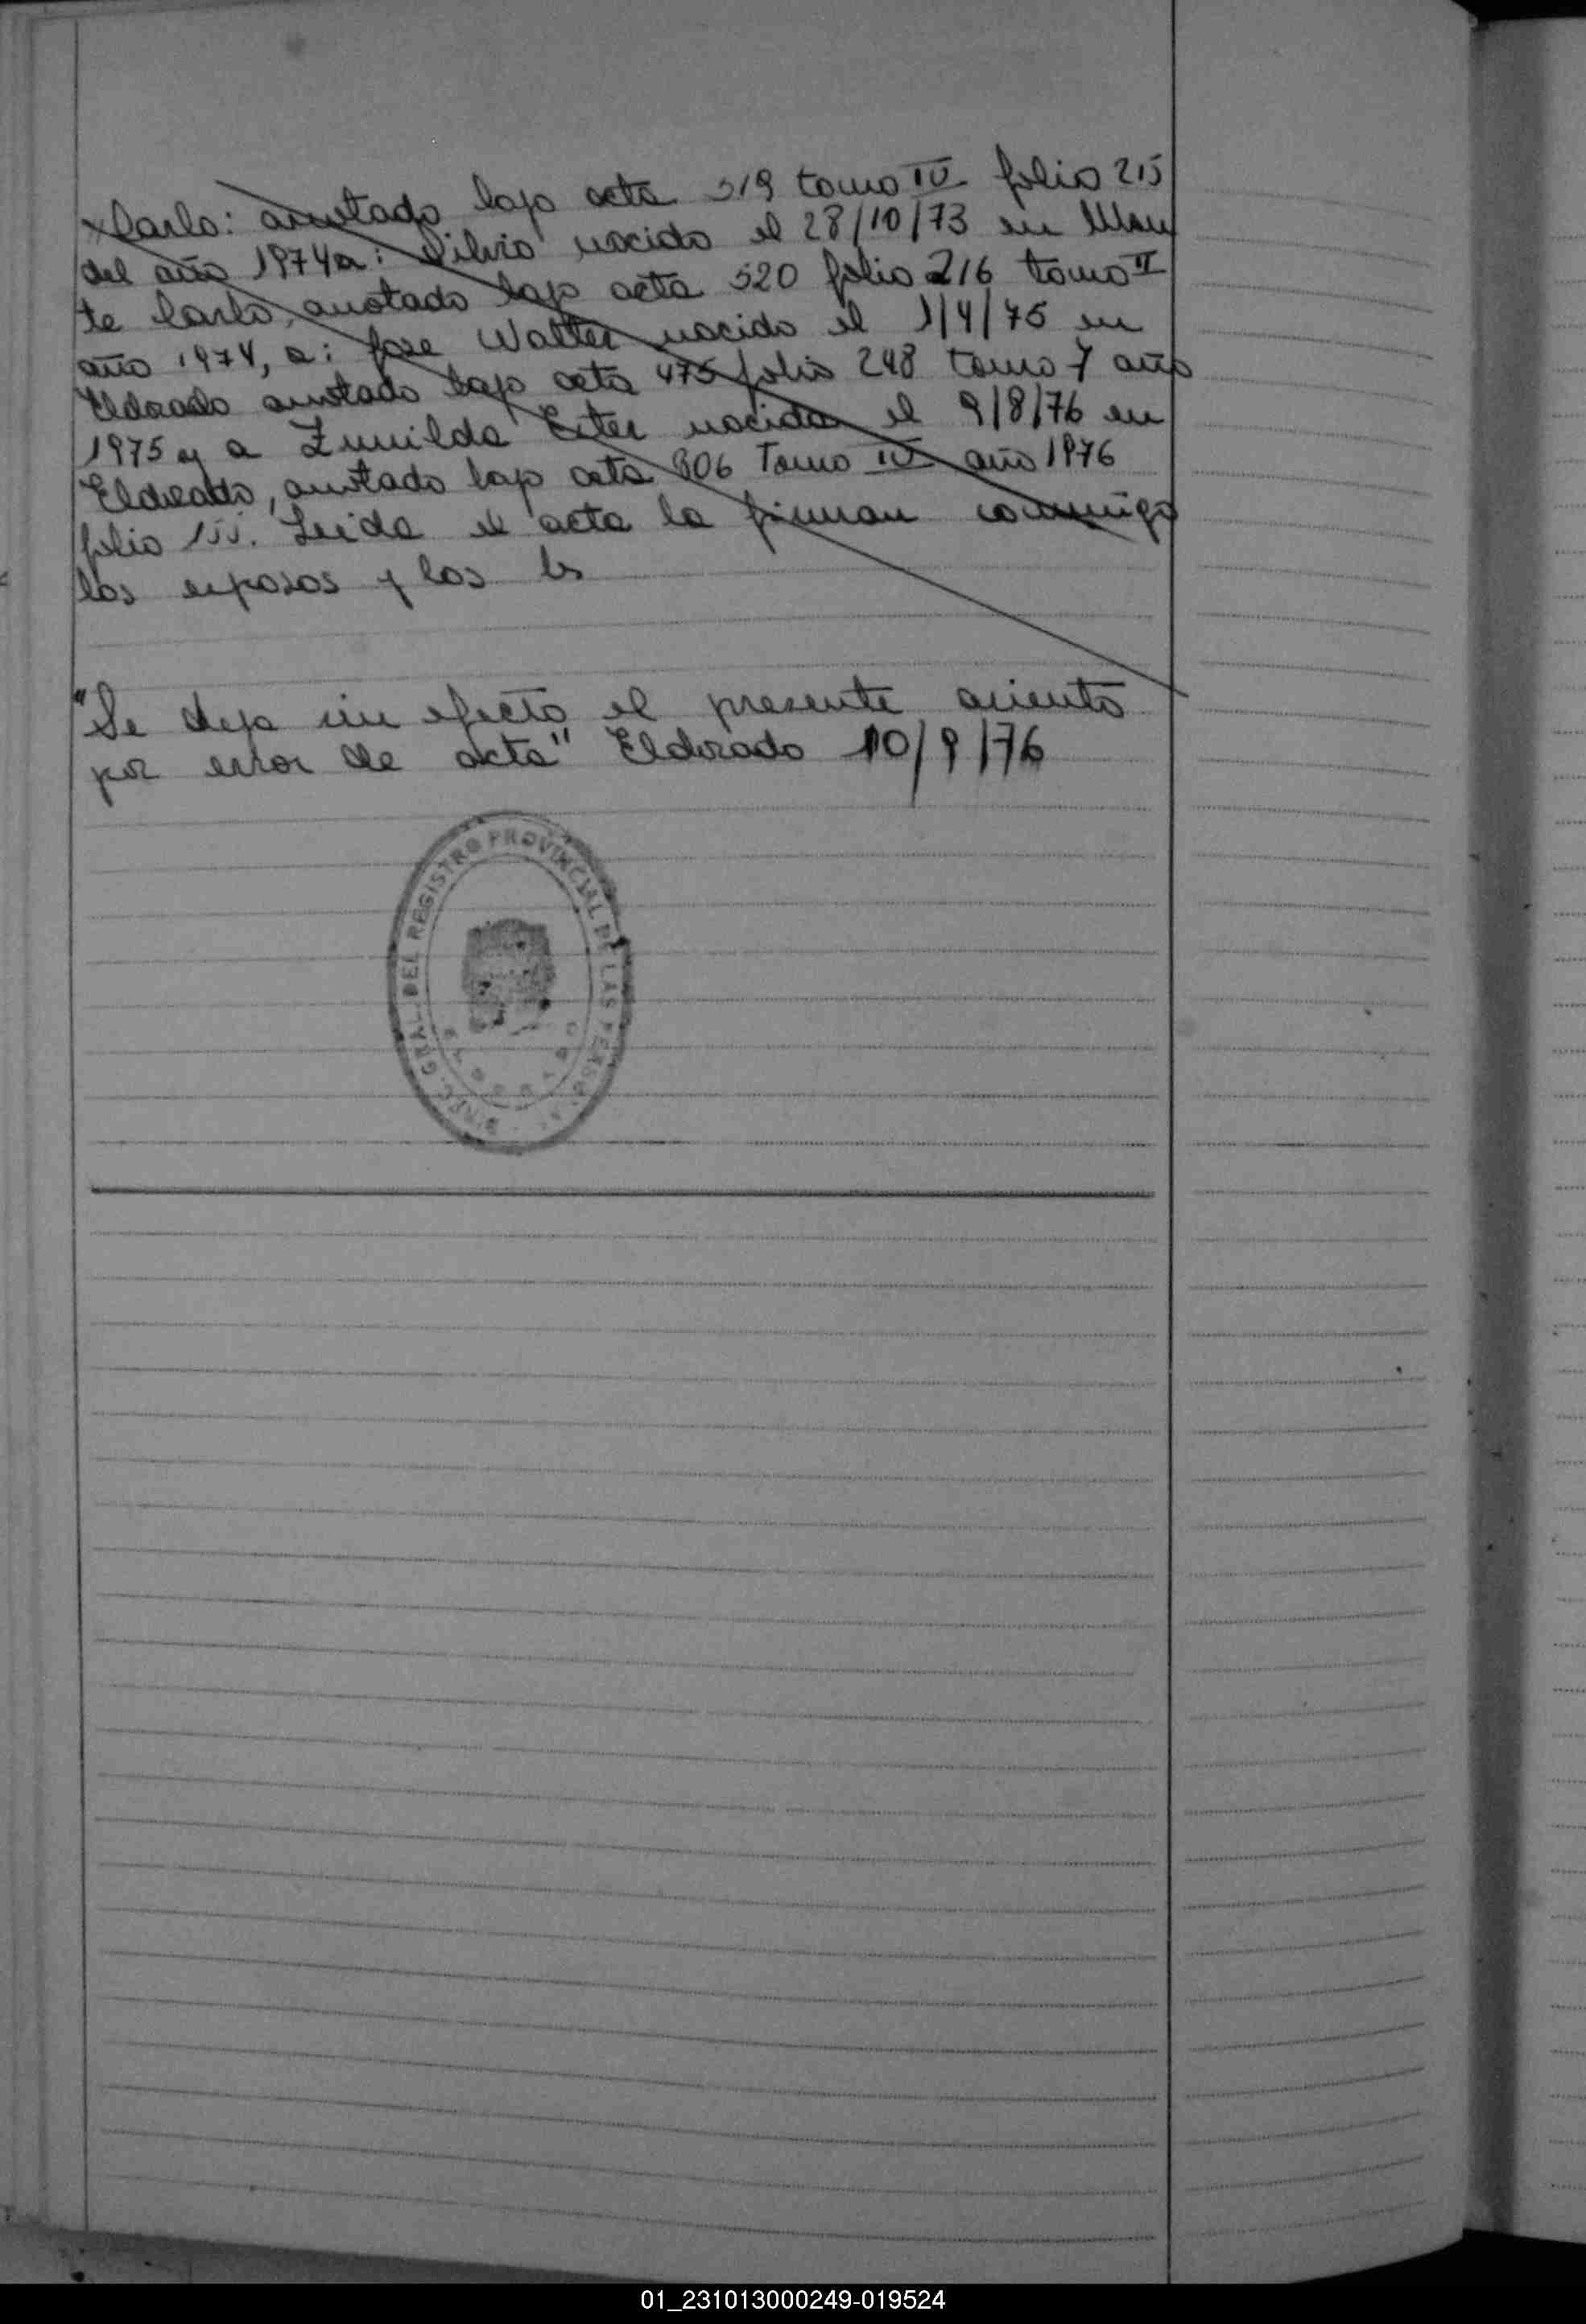 Carlo: anotado bajo acta 519 tomo IV folio 215
del año 1974 a: Silvio nacido el 28/10/73 en Mon
te Carlo, anotado bajo acta 520 folio 216 tomo II
año 1974, a: Jose Walter nacido el 1/4/75 en
Eldorado anotado bajo acta 475 folio 248 tomo 7 año
1975 y a Zunilda Ester nacida el 9/8/76 en
Eldorado, anotado bajo acta 806 Tomo IV año 1976
folio 155. Leida el acta la firman conmigo
los esposos y los ts
"Se deja sin efecto el presente asiento
por error de acta" Eldorado 10/9/76
DIREC. GRAL. DEL REGISTRO PROVINCIAL DE LAS PERSONAS
ELDORADO
01_231013000249-019524